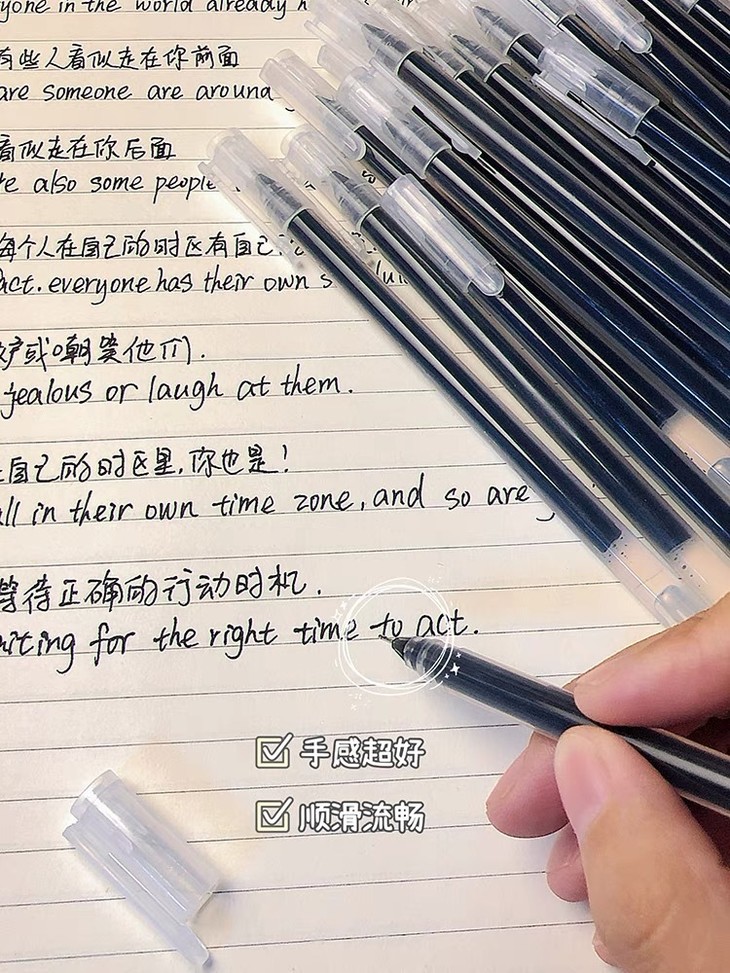 yone in the world already h
有些人看似走在你前面
are someone are around
看似走在你后面
re also some people
每个人在自己的时区有自己
act. everyone has their own s
妒或嘲笑他们.
jealous or laugh at them.
自己的时区里,你也是!
all in their own time zone, and so are y
等待正确的行动时机.
aiting for the right time to act.
手感超好
顺滑流畅